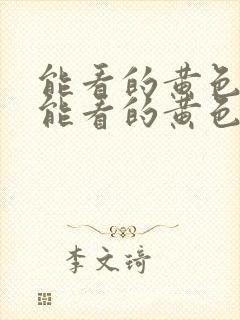 能看的黄色
能看的黄色
李文琦